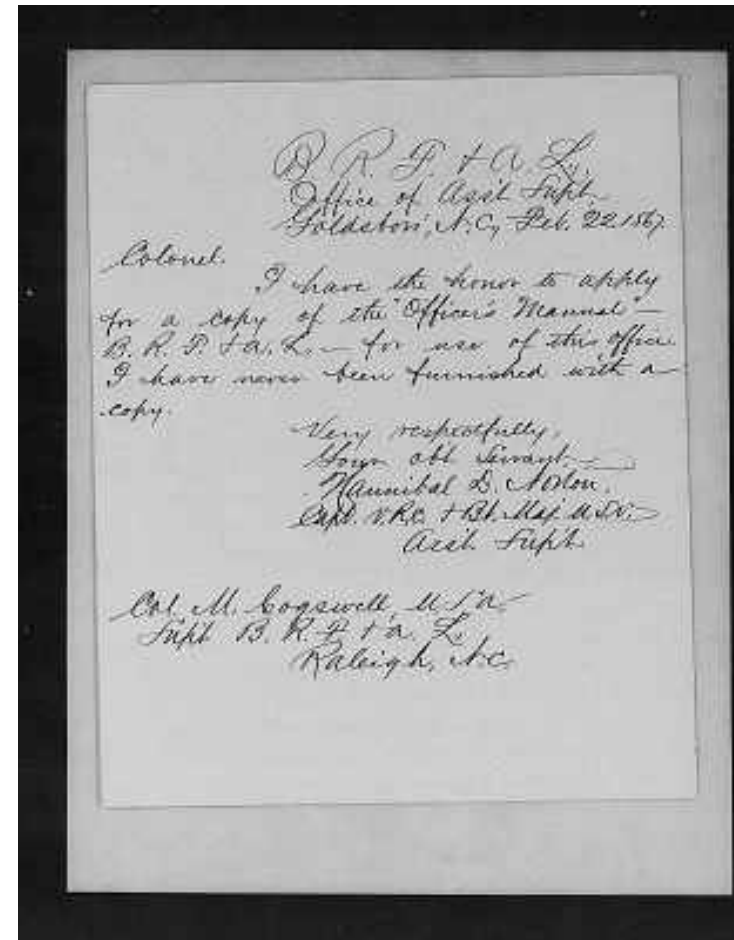 B. R. F. & A. L.
Office of Asst Supt.
Goldsboro', N.C, Feb. 22. 1867.
Colonel.
I have the honor to apply
for a copy of the "Officer's Manual" —
B. R. F. & A. L. — for use of this office.
I have never been furnished with a
copy.
Very respectfully,
Your obt Servant
Hannibal D. Norton.
Capt. V.R.C. & Bt. Maj. U.S.V.
Asst. Supt.
Col. M. Cogswell, U.S.A.
Supt B. R. F. & A. L.
Raleigh, N.C.